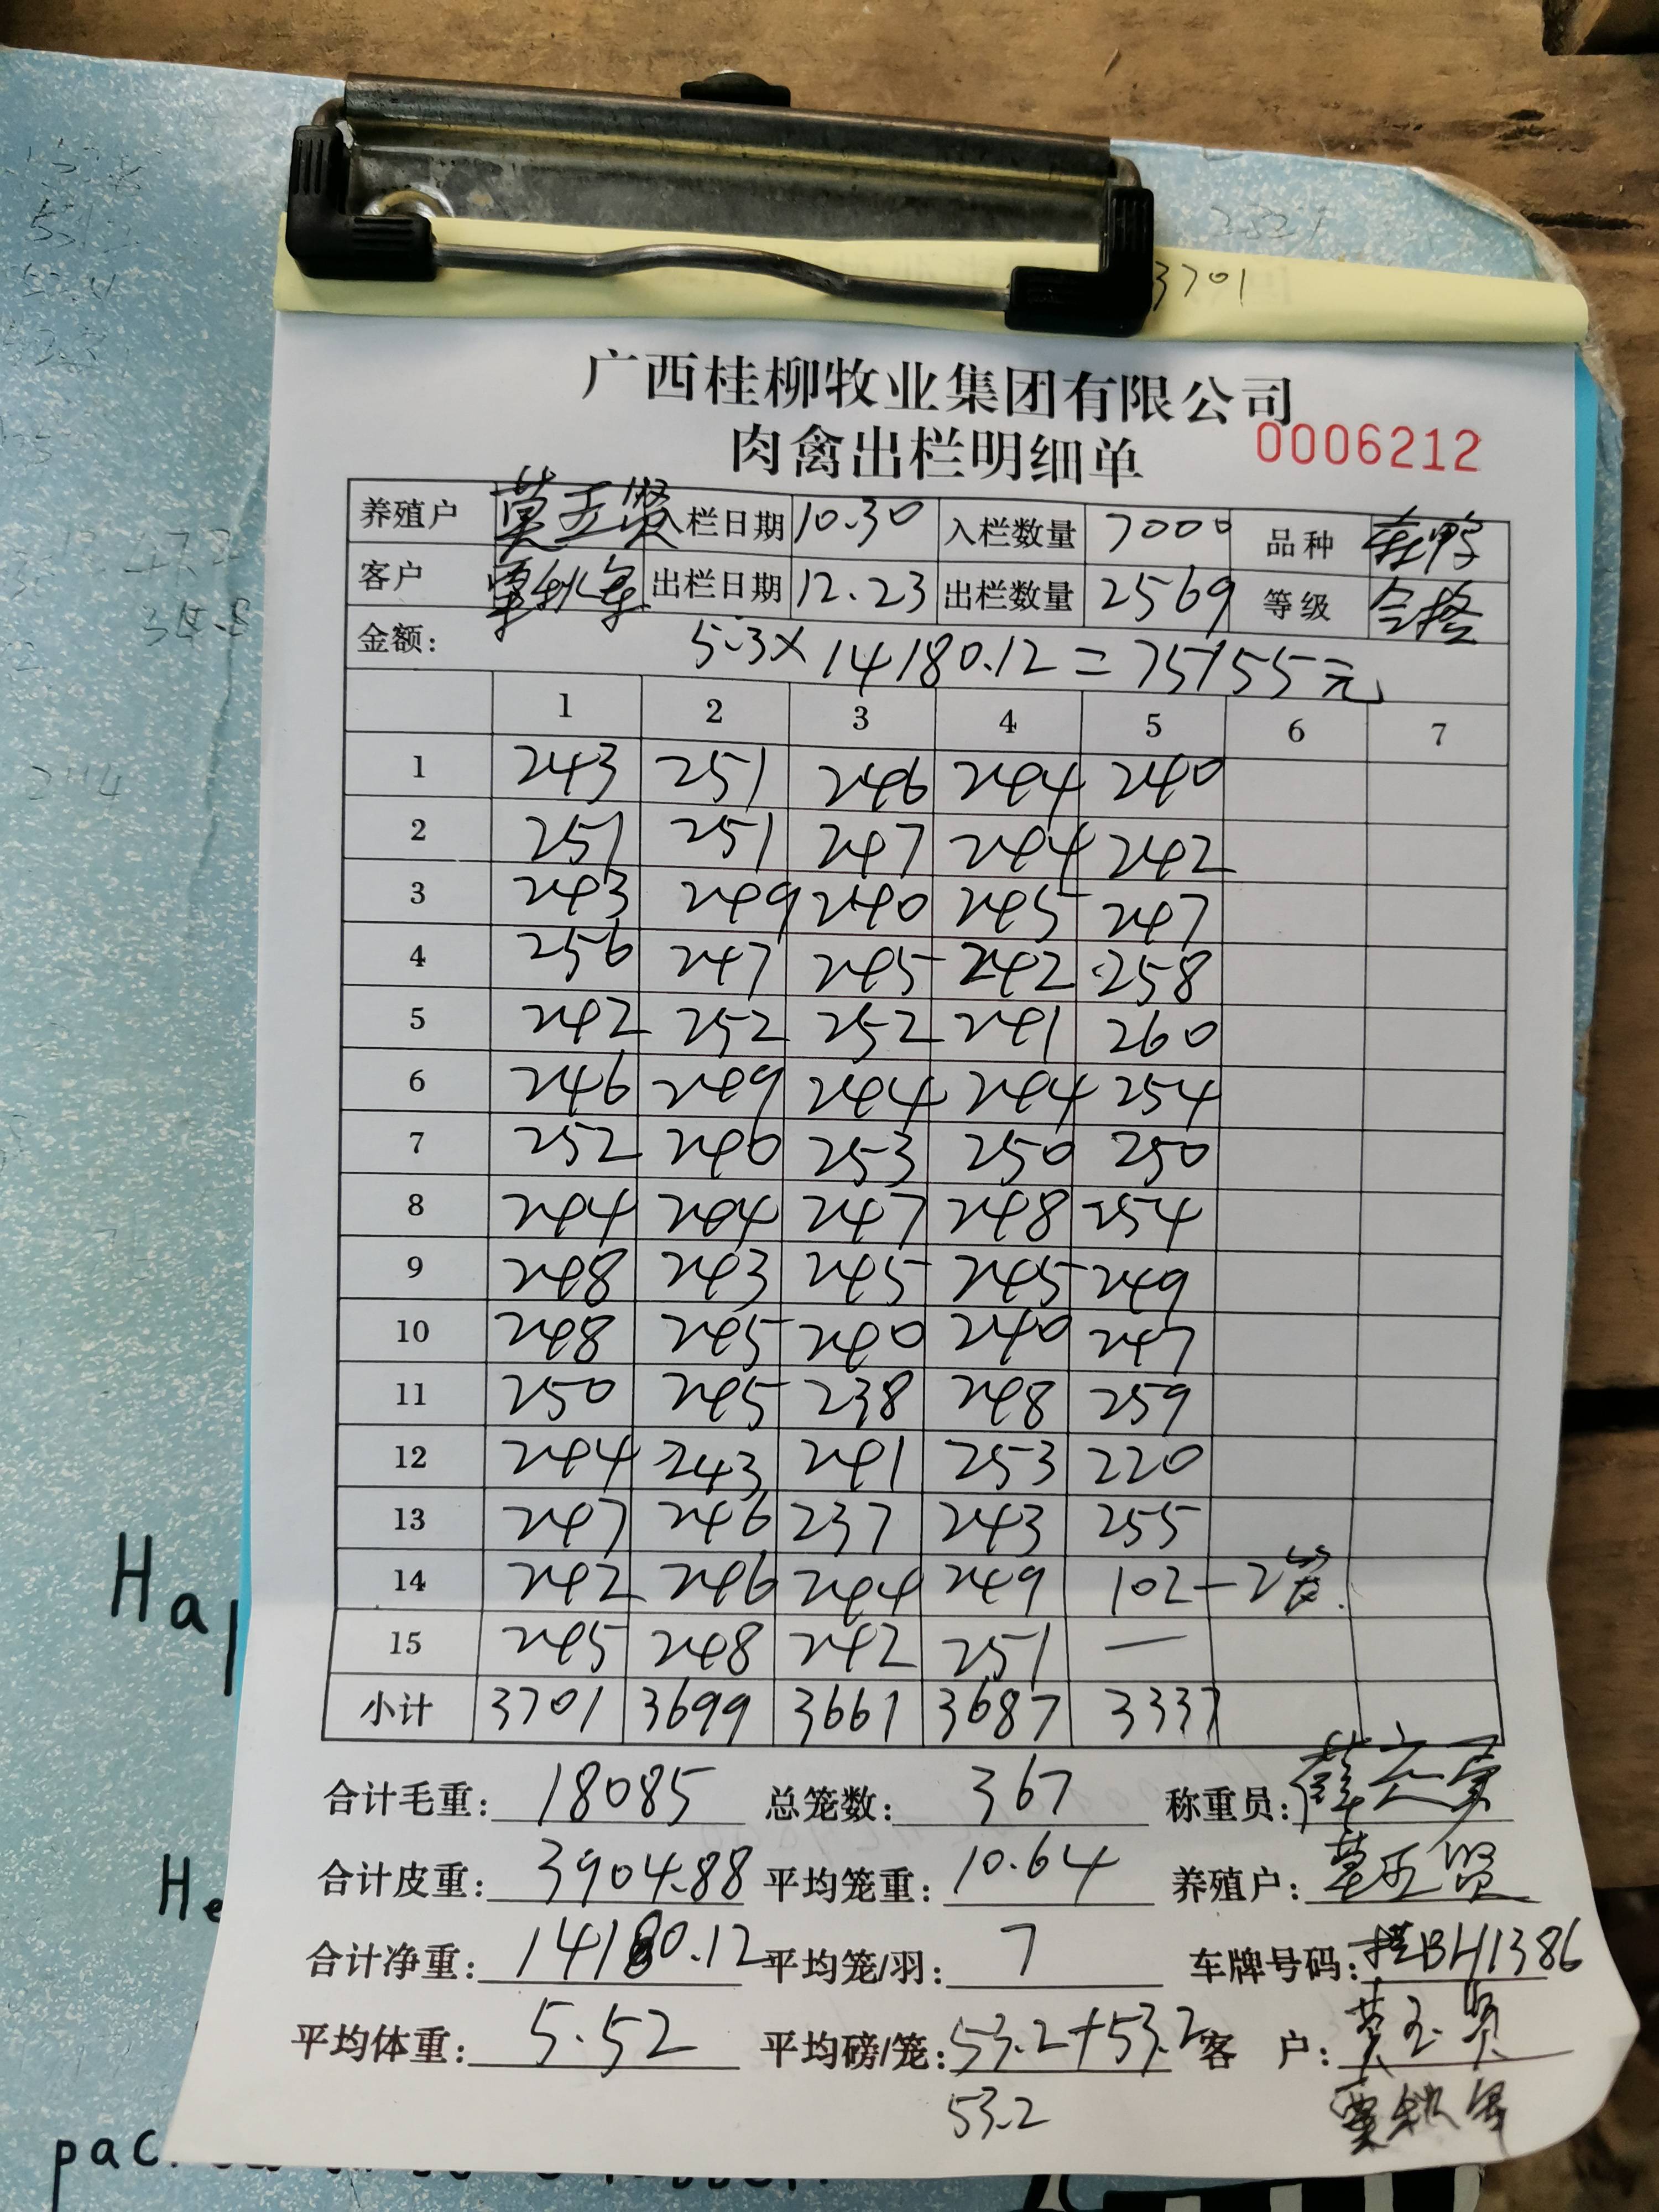 3701
广西桂柳牧业集团有限公司
肉禽出栏明细单 0006212
养殖户 莫玉贤 入栏日期 10.30 入栏数量 7000 品种
客户 覃 出栏日期 12.23 出栏数量 2569 等级 合格
金额: 5.3× 14180.12 = 75155元
1 2 3 4 5 6 7
1 243 251 246 244 240
2 251 251 247 244 242
3 243 249 240 245 247
4 256 247 245 242 258
5 242 252 252 241 260
6 246 249 244 244 254
7 252 240 253 250 250
8 244 244 247 248 254
9 248 243 245 245 249
10 248 245 240 240 247
11 250 245 238 248 259
12 244 243 241 253 220
13 247 246 237 243 255
14 242 246 244 249 102 — 2
15 245 248 242 251 —
小计 3701 3699 3661 3687 3337
合计毛重: 18085 总笼数: 367 称重员:
合计皮重: 3904.88 平均笼重: 10.64 养殖户: 莫玉贤
合计净重: 14180.12 平均笼/羽: 7 车牌号码: 桂BH1386
平均体重: 5.52 平均磅/笼: 53.2+53.2 客 户: 莫玉贤
53.2
Hap
He
pac